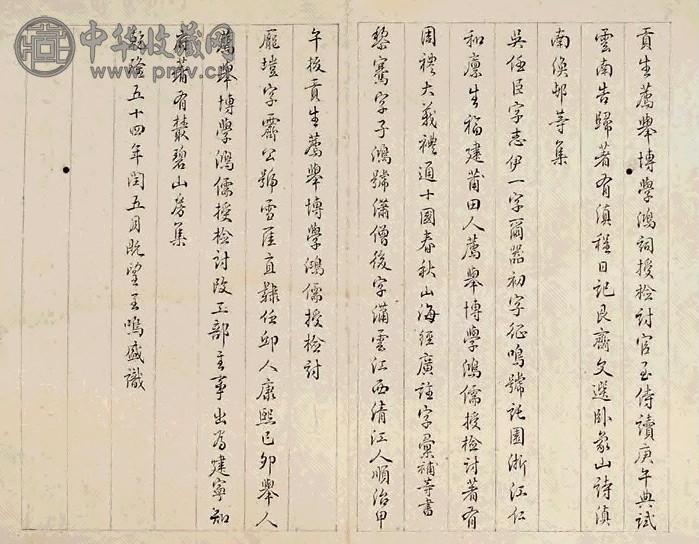 貢生薦舉博學鴻詞授檢討官至侍讀庚午典試
雲南告歸著有滇程日記艮齋文選臥象山詩滇
南倡邨等集
吳任臣字志伊一字爾器初字征鳴號託園浙江仁
和廩生福建莆田人薦舉博學鴻儒授檢討著有
周禮大義禮通十國春秋山海經廣註字彙補等書
黎騫字子鴻號瀟僧後字瀟雲江西清江人順治甲
午拔貢生薦舉博學鴻儒授檢討
龐塏字霽公號雪厓直隸任邱人康熙己卯舉人
薦舉博學鴻儒授檢討改工部主事出為建寧知
府著有叢碧山房集
乾隆五十四年閏五月既望王鳴盛識
中华收藏网
www.pmv.cn